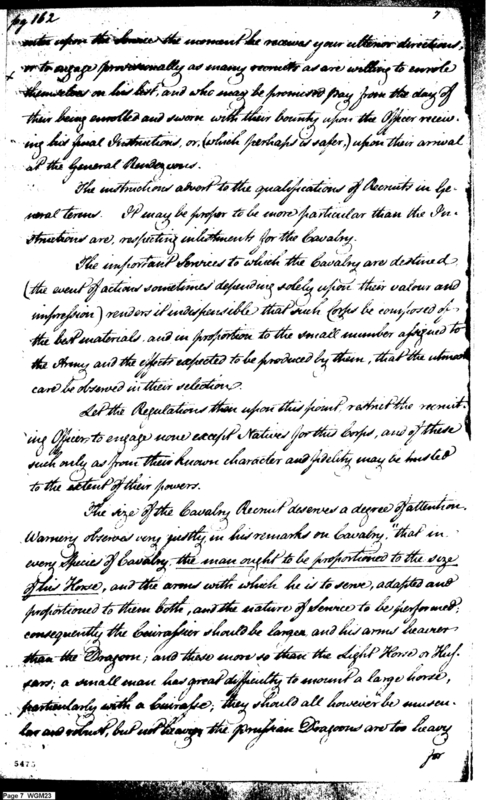 pg 162
7
enter upon the Service the moment he receives your ulterior directions;
or to engage provisionally as many recruits as are willing to enrole
themselves on his list, and who may be promised pay from the day of
their being enrolled and sworn with their bounty upon the Officer receiv-
ing his final Instructions, or, (which perhaps is safer,) upon their arrival
at the General Rendezvous.
The instructions advert to the qualifications of Recruits in Ge-
neral terms. It may be proper to be more particular than the In-
structions are, respecting inlistments for the Cavalry.
The important Services to which the Cavalry are destined
(the event of actions sometimes depending solely upon their valour and
impression) renders it indispensible that such Corps be composed of
the best materials, and in proportion to the small number assigned to
the Army and the effects expected to be produced by them, that the utmost
care be observed in their selection.
Let the Regulations then upon this point, restrict the recruit-
ing Officer to engage none except Natives for this Corps, and of these
such only as from their known character and fidelity may be trusted
to the extent of their powers.
The size of the Cavalry Recruit deserves a degree of attention.
Warnery observes very justly, in his remarks on Cavalry, "that in
every Species of Cavalry, the man ought to be proportioned to the size
of his Horse, and the arms with which he is to serve, adapted and
proportioned to them both, and the nature of Service to be performed;
consequently the Cuirassier should be larger and his arms heavier
than the Dragoon; and these more so than the Light Horse or Hus-
sars; a small man has great difficulty to mount a large horse,
particularly with a Cuirasse; they should all however be muscu-
lar and robust, but not heavy; the Prussian Dragoons are too heavy
for
5475
Page 7 WGM23